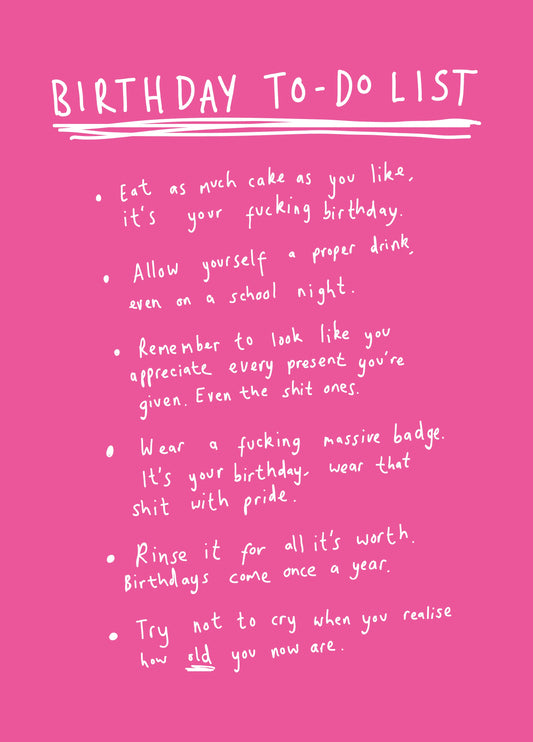 BIRTHDAY TO-DO LIST
• Eat as much cake as you like,
it's your fucking birthday.
• Allow yourself a proper drink,
even on a school night.
• Remember to look like you
appreciate every present you're
given. Even the shit ones.
• Wear a fucking massive badge.
It's your birthday, wear that
shit with pride.
• Rinse it for all it's worth.
Birthdays come once a year.
• Try not to cry when you realise
how old you now are.